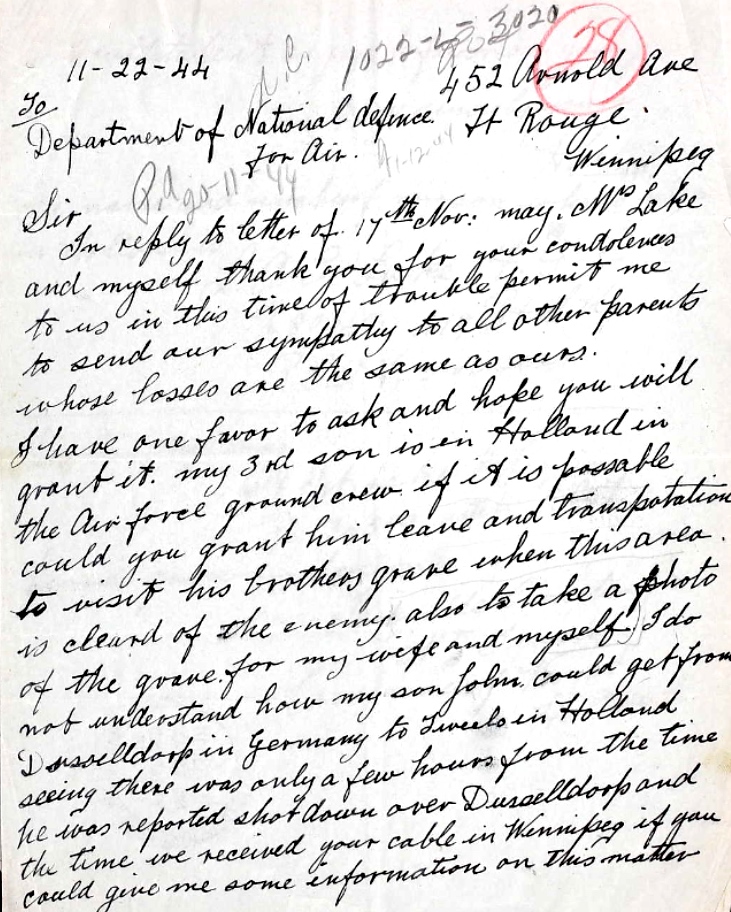 1022-L-3020
28
11-22-44
452 Arnold Ave
To
Department of National defence.
Ft Rouge.
for Air.
11-12-44
Winnipeg
P.A
20-11-44
Sir
In reply to letter of 17th Nov: may. Mrs Lake
and myself thank you for your condolences
to us in this time of trouble permit me
to send our sympathy to all other parents
whose losses are the same as ours.
I have one favor to ask and hope you will
grant it. my 3rd son is in Holland in
the Air force ground crew. if it is possable
could you grant him leave and transpotation
to visit his brothers grave when this area.
is cleard of the enemy. also to take a photo
of the grave. for my wife and myself) I do
not understand how my son John. could get from
Dusselldorp in Germany to Tweelo in Holland
seeing there was only a few hours from the time
he was reported shot down over Dusselldorp and
the time we received your cable in Winnipeg if you
could give me some information on this matter